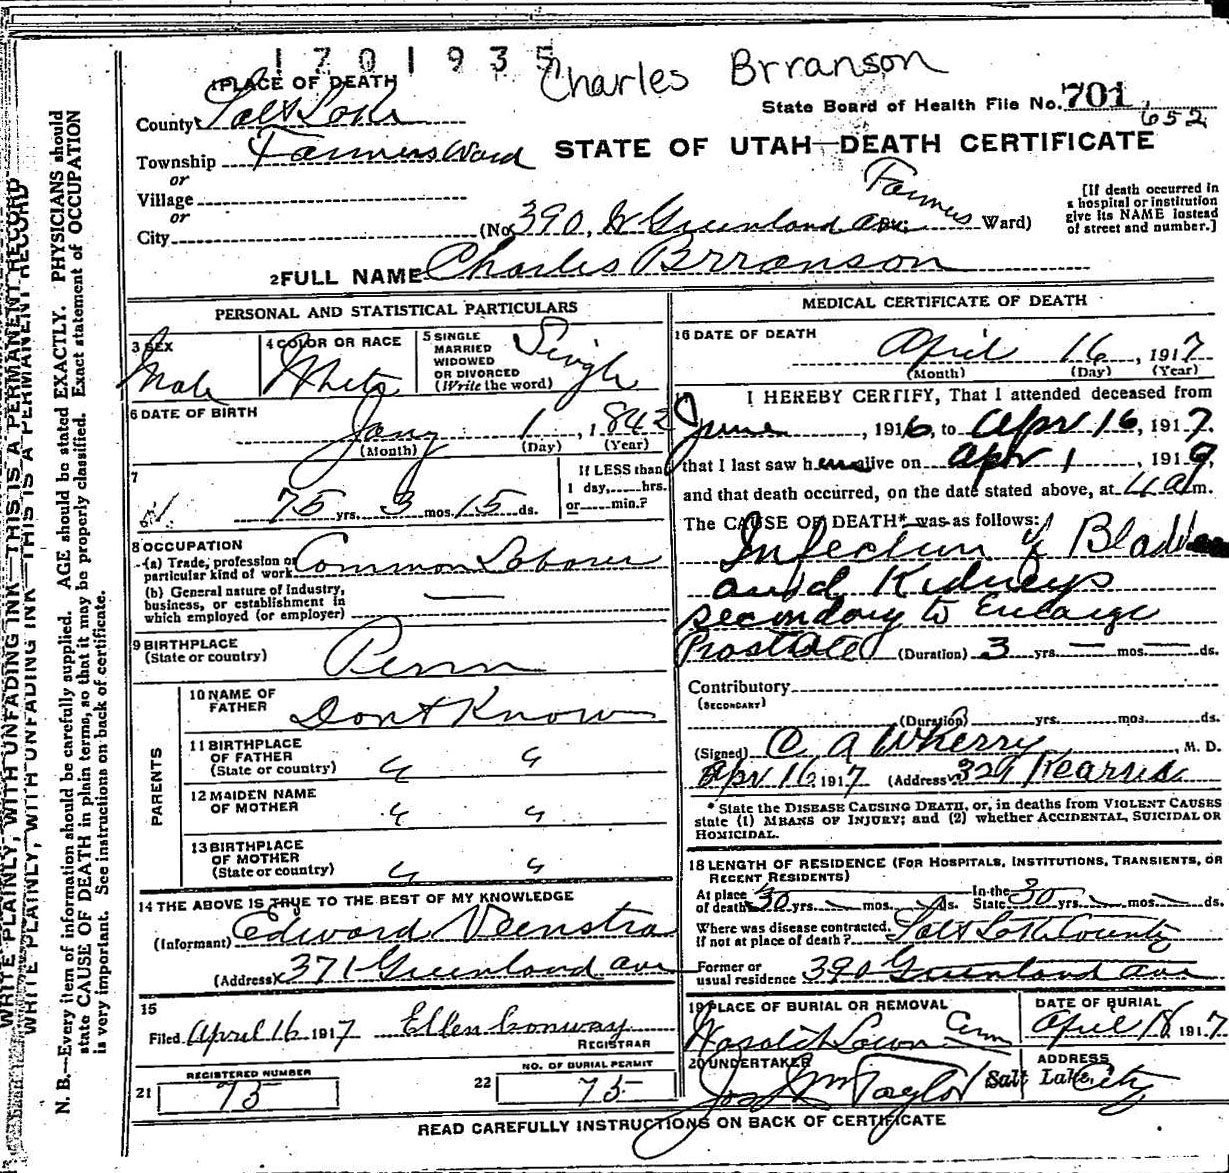 1701935
Charles Brranson
1 PLACE OF DEATH
State Board of Health File No. 701
652
County Salt Lake
STATE OF UTAH—DEATH CERTIFICATE
Township Farmers Ward
or
Village
or
City (No. 390, W Greenland ave. St.; Farmers Ward)
[If death occurred in
a hospital or institution
give its NAME instead
of street and number.]
2 FULL NAME Charles Brranson
PERSONAL AND STATISTICAL PARTICULARS
3 SEX
Male
4 COLOR OR RACE
White
5 SINGLE
MARRIED
WIDOWED
OR DIVORCED
(Write the word)
Single
6 DATE OF BIRTH
Jany 1, 1842
(Month) (Day) (Year)
7
75 yrs. 3 mos. 15 ds.
If LESS than
1 day, hrs.
or min.?
8 OCCUPATION
(a) Trade, profession or
particular kind of work Common Laborer
(b) General nature of Industry,
business, or establishment in
which employed (or employer)
9 BIRTHPLACE
(State or country) Penn
PARENTS
10 NAME OF
FATHER Dont Know
11 BIRTHPLACE
OF FATHER
(State or country) " "
12 MAIDEN NAME
OF MOTHER " "
13 BIRTHPLACE
OF MOTHER
(State or country) " "
14 THE ABOVE IS TRUE TO THE BEST OF MY KNOWLEDGE
(Informant) Edward Veenstra
(Address) 371 Greenland ave
15
Filed April 16 1917 Ellen Conway
REGISTRAR
REGISTERED NUMBER
21 75
NO. OF BURIAL PERMIT
22 75
MEDICAL CERTIFICATE OF DEATH
16 DATE OF DEATH
April 16, 1917
(Month) (Day) (Year)
I HEREBY CERTIFY, That I attended deceased from
June, 1916, to Apr 16, 1917,
that I last saw h alive on Apr 1, 191
and that death occurred, on the date stated above, at 4 a m.
The CAUSE OF DEATH* was as follows:
Infection of Bladder
and Kidneys
secondary to Enlarge
Prostate (Duration) 3 yrs. — mos. — ds.
Contributory
(SECONDARY)
(Duration) yrs. mos. ds.
(Signed) C A Wherry, M. D.
Apr 16 1917 (Address) 329 Kearns
* State the DISEASE CAUSING DEATH, or, in deaths from VIOLENT CAUSES
state (1) MEANS OF INJURY; and (2) whether ACCIDENTAL, SUICIDAL OR
HOMICIDAL.
18 LENGTH OF RESIDENCE (FOR HOSPITALS, INSTITUTIONS, TRANSIENTS, OR
RECENT RESIDENTS)
At place of death 30 yrs. — mos. — ds. In the State 30 yrs. — mos. — ds.
Where was disease contracted,
if not at place of death? Salt Lake County
Former or
usual residence 390 Greenland ave
19 PLACE OF BURIAL OR REMOVAL
Wasatch Lawn Cem
DATE OF BURIAL
April 18 1917
20 UNDERTAKER
Jos Wm Taylor
ADDRESS
Salt Lake City
READ CAREFULLY INSTRUCTIONS ON BACK OF CERTIFICATE
WRITE PLAINLY, WITH UNFADING INK—THIS IS A PERMANENT RECORD
WRITE PLAINLY, WITH UNFADING INK—THIS IS A PERMANENT RECORD
N. B.—Every item of information should be carefully supplied. AGE should be stated EXACTLY. PHYSICIANS should
state CAUSE OF DEATH in plain terms, so that it may be properly classified. Exact statement of OCCUPATION
is very important. See instructions on back of certificate.